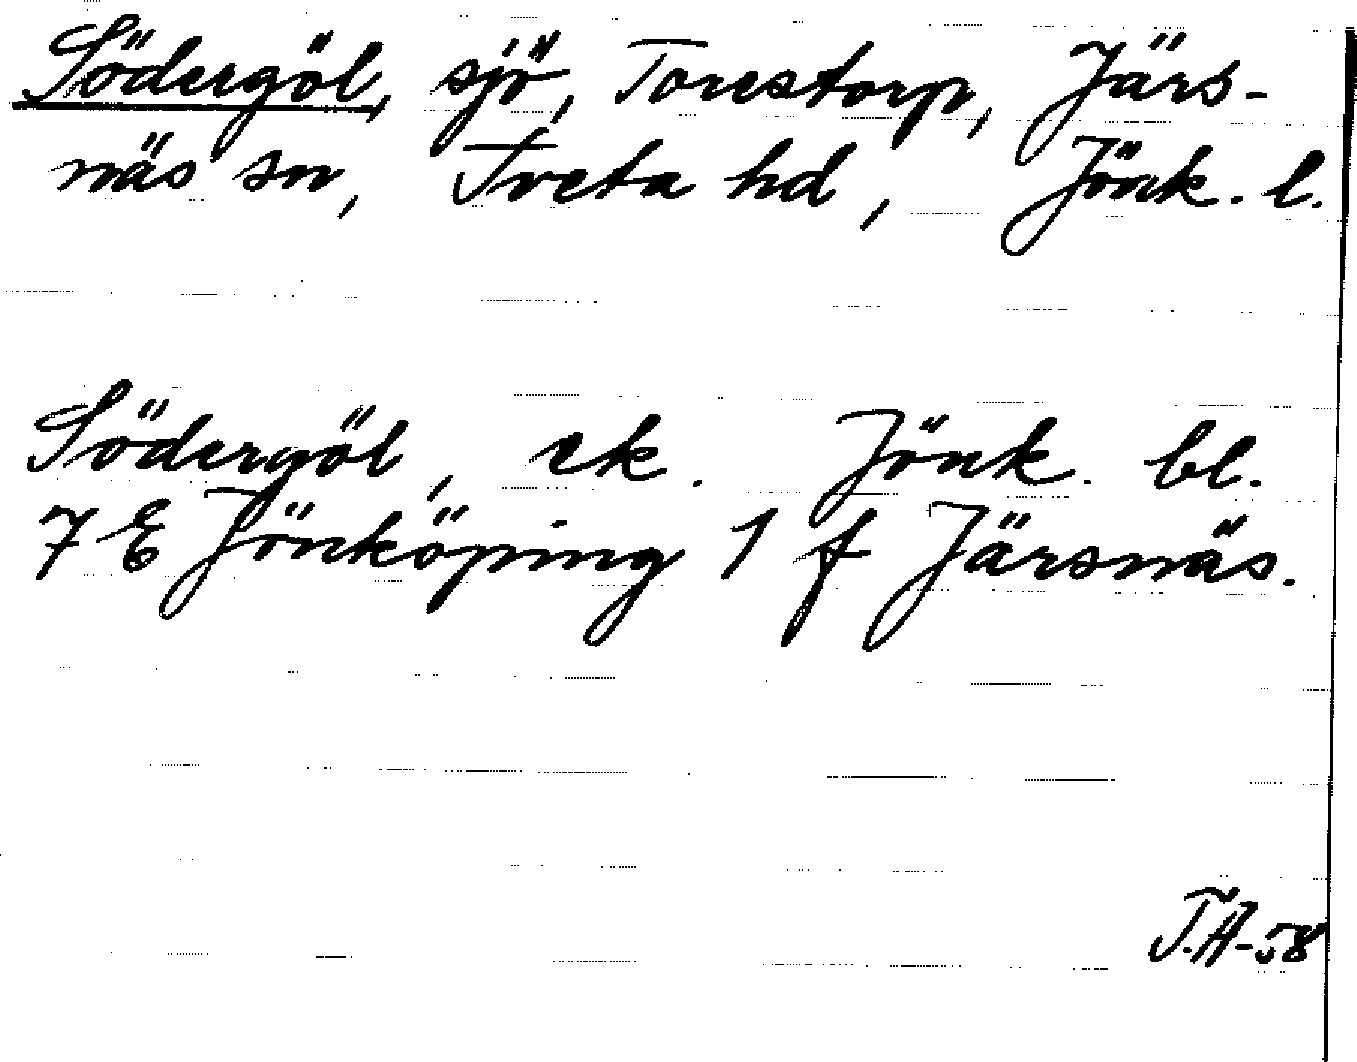 Södergöl, sjö, Torestorp, Järs-
näs sn, Tveta hd, Jönk. l.
Södergöl, ek. Jönk. bl.
7 E Jönköping 1 f Järsnäs.
T.A-58